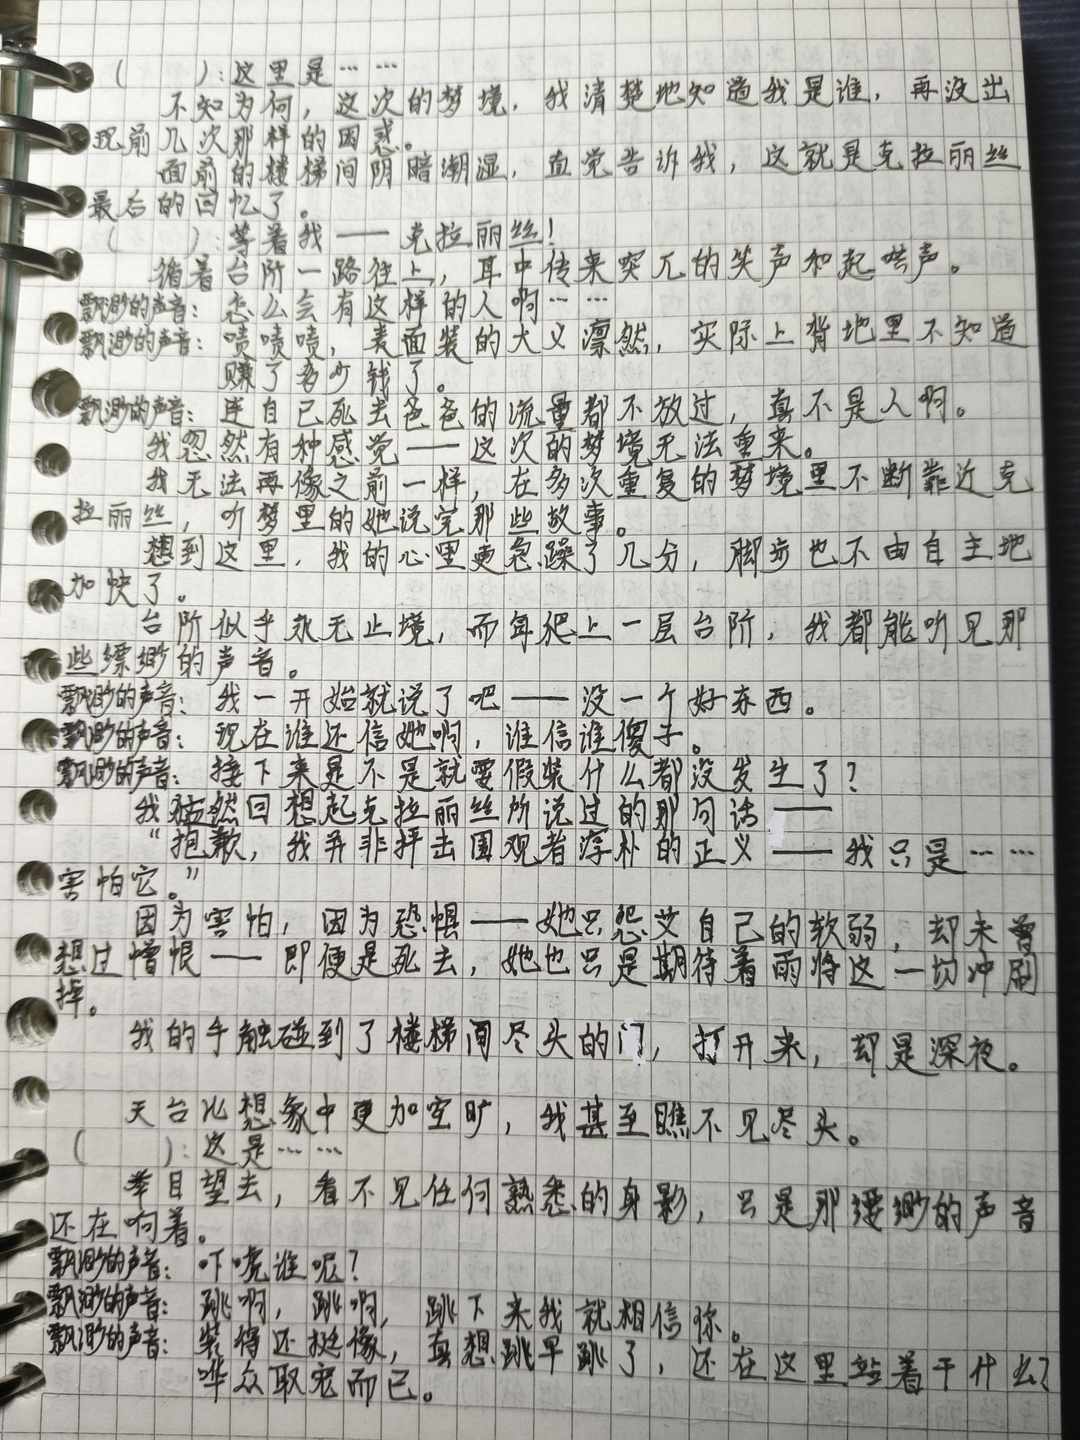 (　　):这里是……
不知为何，这次的梦境，我清楚地知道我是谁，再没出
现前几次那样的困惑。
面前的楼梯间阴暗潮湿，直觉告诉我，这就是克拉丽丝
最后的回忆了。
(　　):等着我——克拉丽丝！
循着台阶一路往上，耳中传来突兀的笑声和起哄声。
飘渺的声音：怎么会有这样的人啊……
飘渺的声音：啧啧啧，表面装的大义凛然，实际上背地里不知道
赚了多少钱了。
飘渺的声音：连自己死去爸爸的流量都不放过，真不是人啊。
我忽然有种感觉——这次的梦境无法重来。
我无法再像之前一样，在多次重复的梦境里不断靠近克
拉丽丝，听梦里的她说完那些故事。
想到这里，我的心里更急躁了几分，脚步也不由自主地
加快了。
台阶似乎永无止境，而每爬上一层台阶，我都能听见那
些缥缈的声音。
飘渺的声音：我一开始就说了吧——没一个好东西。
飘渺的声音：现在谁还信她啊，谁信谁傻子。
飘渺的声音：接下来是不是就要假装什么都没发生了？
我猛然回想起克拉丽丝所说过的那句话——
“抱歉，我并非抨击围观者淳朴的正义——我只是……
害怕它。”
因为害怕，因为恐惧——她只怨艾自己的软弱，却未曾
想过憎恨——即便是死去，她也只是期待着雨将这一切冲刷
掉。
我的手触碰到了楼梯间尽头的门，打开来，却是深夜。
天台比想象中更加空旷，我甚至瞧不见尽头。
(　　):这是……
举目望去，看不见任何熟悉的身影，只是那缥缈的声音
还在响着。
飘渺的声音：吓唬谁呢？
飘渺的声音：跳啊，跳啊，跳下来我就相信你。
飘渺的声音：装得还挺像，真想跳早跳了，还在这里站着干什么？
哗众取宠而已。